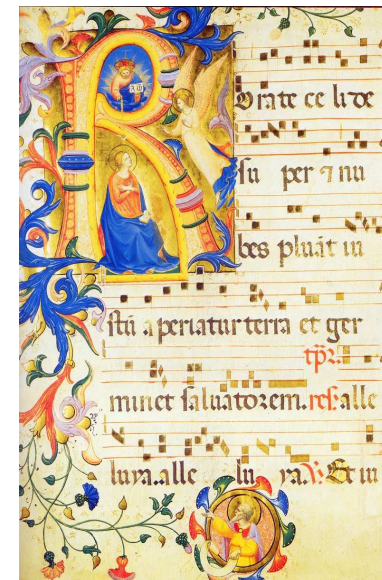 Rorate ce li de
su per ⁊ nu
bes pluāt iu
stū aperiatur terra et ger
tp̄r.
minet saluatorem.res. alle
luya..alle lu ya.V. Et iu